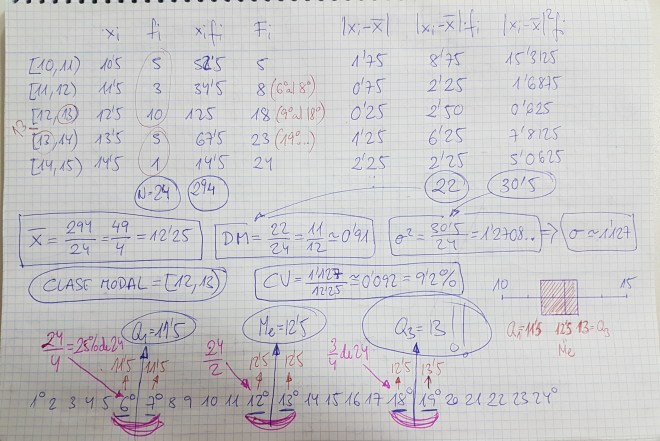 xi fi xi·fi Fi |xi-x̄| |xi-x̄|·fi |xi-x̄|²fi
[10,11) 10'5 5 52'5 5 1'75 8'75 15'3125
[11,12) 11'5 3 34'5 8 (6º al 8º) 0'75 2'25 1'6875
[12,13) 12'5 10 125 18 (9º al 18º) 0'25 2'50 0'625
13
[13,14) 13'5 5 67'5 23 (19º...) 1'25 6'25 7'8125
[14,15) 14'5 1 14'5 24 2'25 2'25 5'0625
N=24 294 22 30'5
X̄ = 294/24 = 49/4 = 12'25 DM = 22/24 = 11/12 ≃ 0'91 σ² = 30'5/24 = 1'2708.. ⇒ σ ≃ 1'127
CLASE MODAL = [12,13) CV = 1'127/12'25 ≃ 0'092 = 9'2% 10 15
Q1=11'5 Me=12'5 Q3=13 !! Q1=11'5 12'5 13=Q3
Me
24/4 = 25% de 24 11'5 11'5 24/2 12'5 12'5 3/4 de 24 12'5 13'5
1º 2 3 4 5 6º 7º 8 9 10 11 12º 13º 14 15 16 17 18º 19º 20 21 22 23 24º